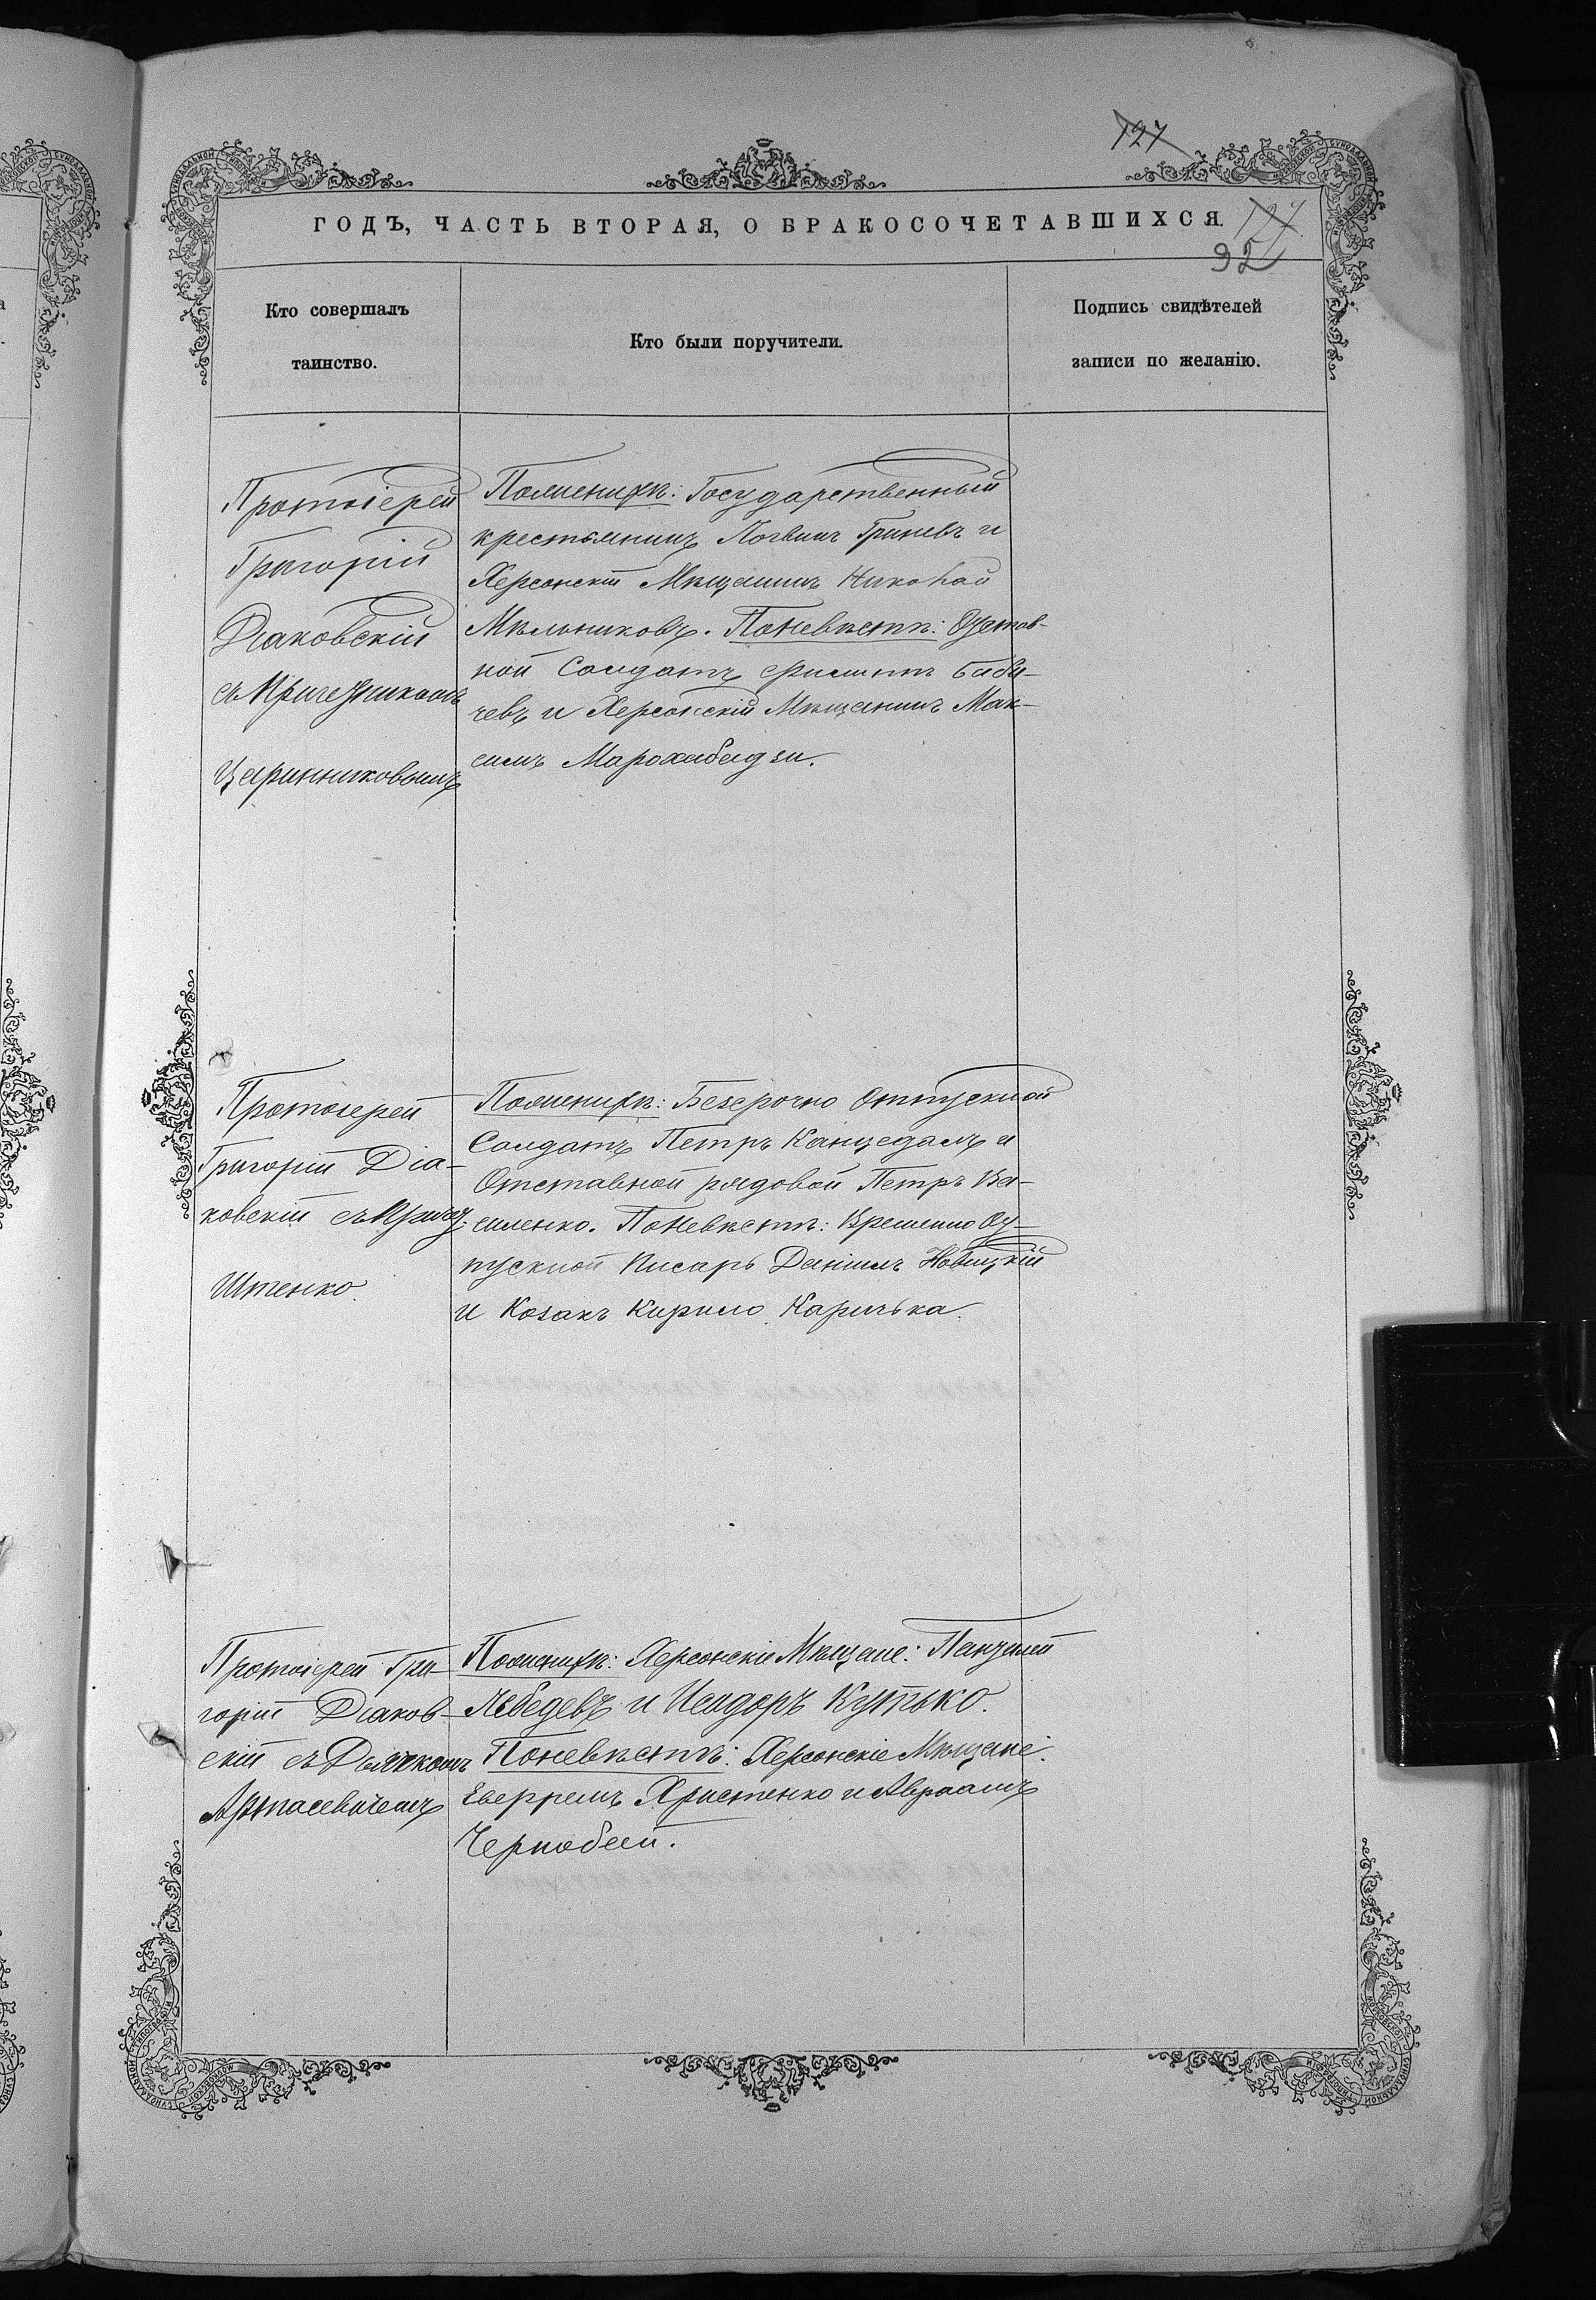 127
ГОДЪ, ЧАСТЬ ВТОРАЯ, О БРАКОСОЧЕТАВШИХСЯ.
127
92
Кто совершалъ
таинство.
Кто были поручители.
Подпись свидѣтелей
записи по желанію.
Протоіерей
Григорій
Діаковскій
съ Причетникомъ
Царинниковымъ
По женихѣ: Государственный
крестьянинъ Логвинъ Гриневъ и
Херсонскій Мѣщанинъ Николай
Мѣльниковъ. По невѣстѣ: Отстав-
ной Солдатъ Филиппъ Баби-
чевъ и Херсонскій Мѣщанинъ Мак-
симъ
Протоіерей
Григорій Діа-
ковскій съ Причет.
Штенко.
По женихѣ: Безсрочно Отпускной
Солдатъ Петръ Канцедалъ и
Отставной рядовой Петръ Ва-
силенко. По невѣстѣ: Временно От-
пускной Писарь Даніилъ Новицкій
и Козакъ Кирило Карпека.
Протоіерей Гри-
горій Діаков-
скій съ Дьячкомъ
По женихѣ: Херсонскіе Мѣщане:
Лебедевъ и Исидоръ Кутько.
По невѣстѣ: Херсонскіе Мѣщане:
Христенко и Авраамъ
Чернобай.